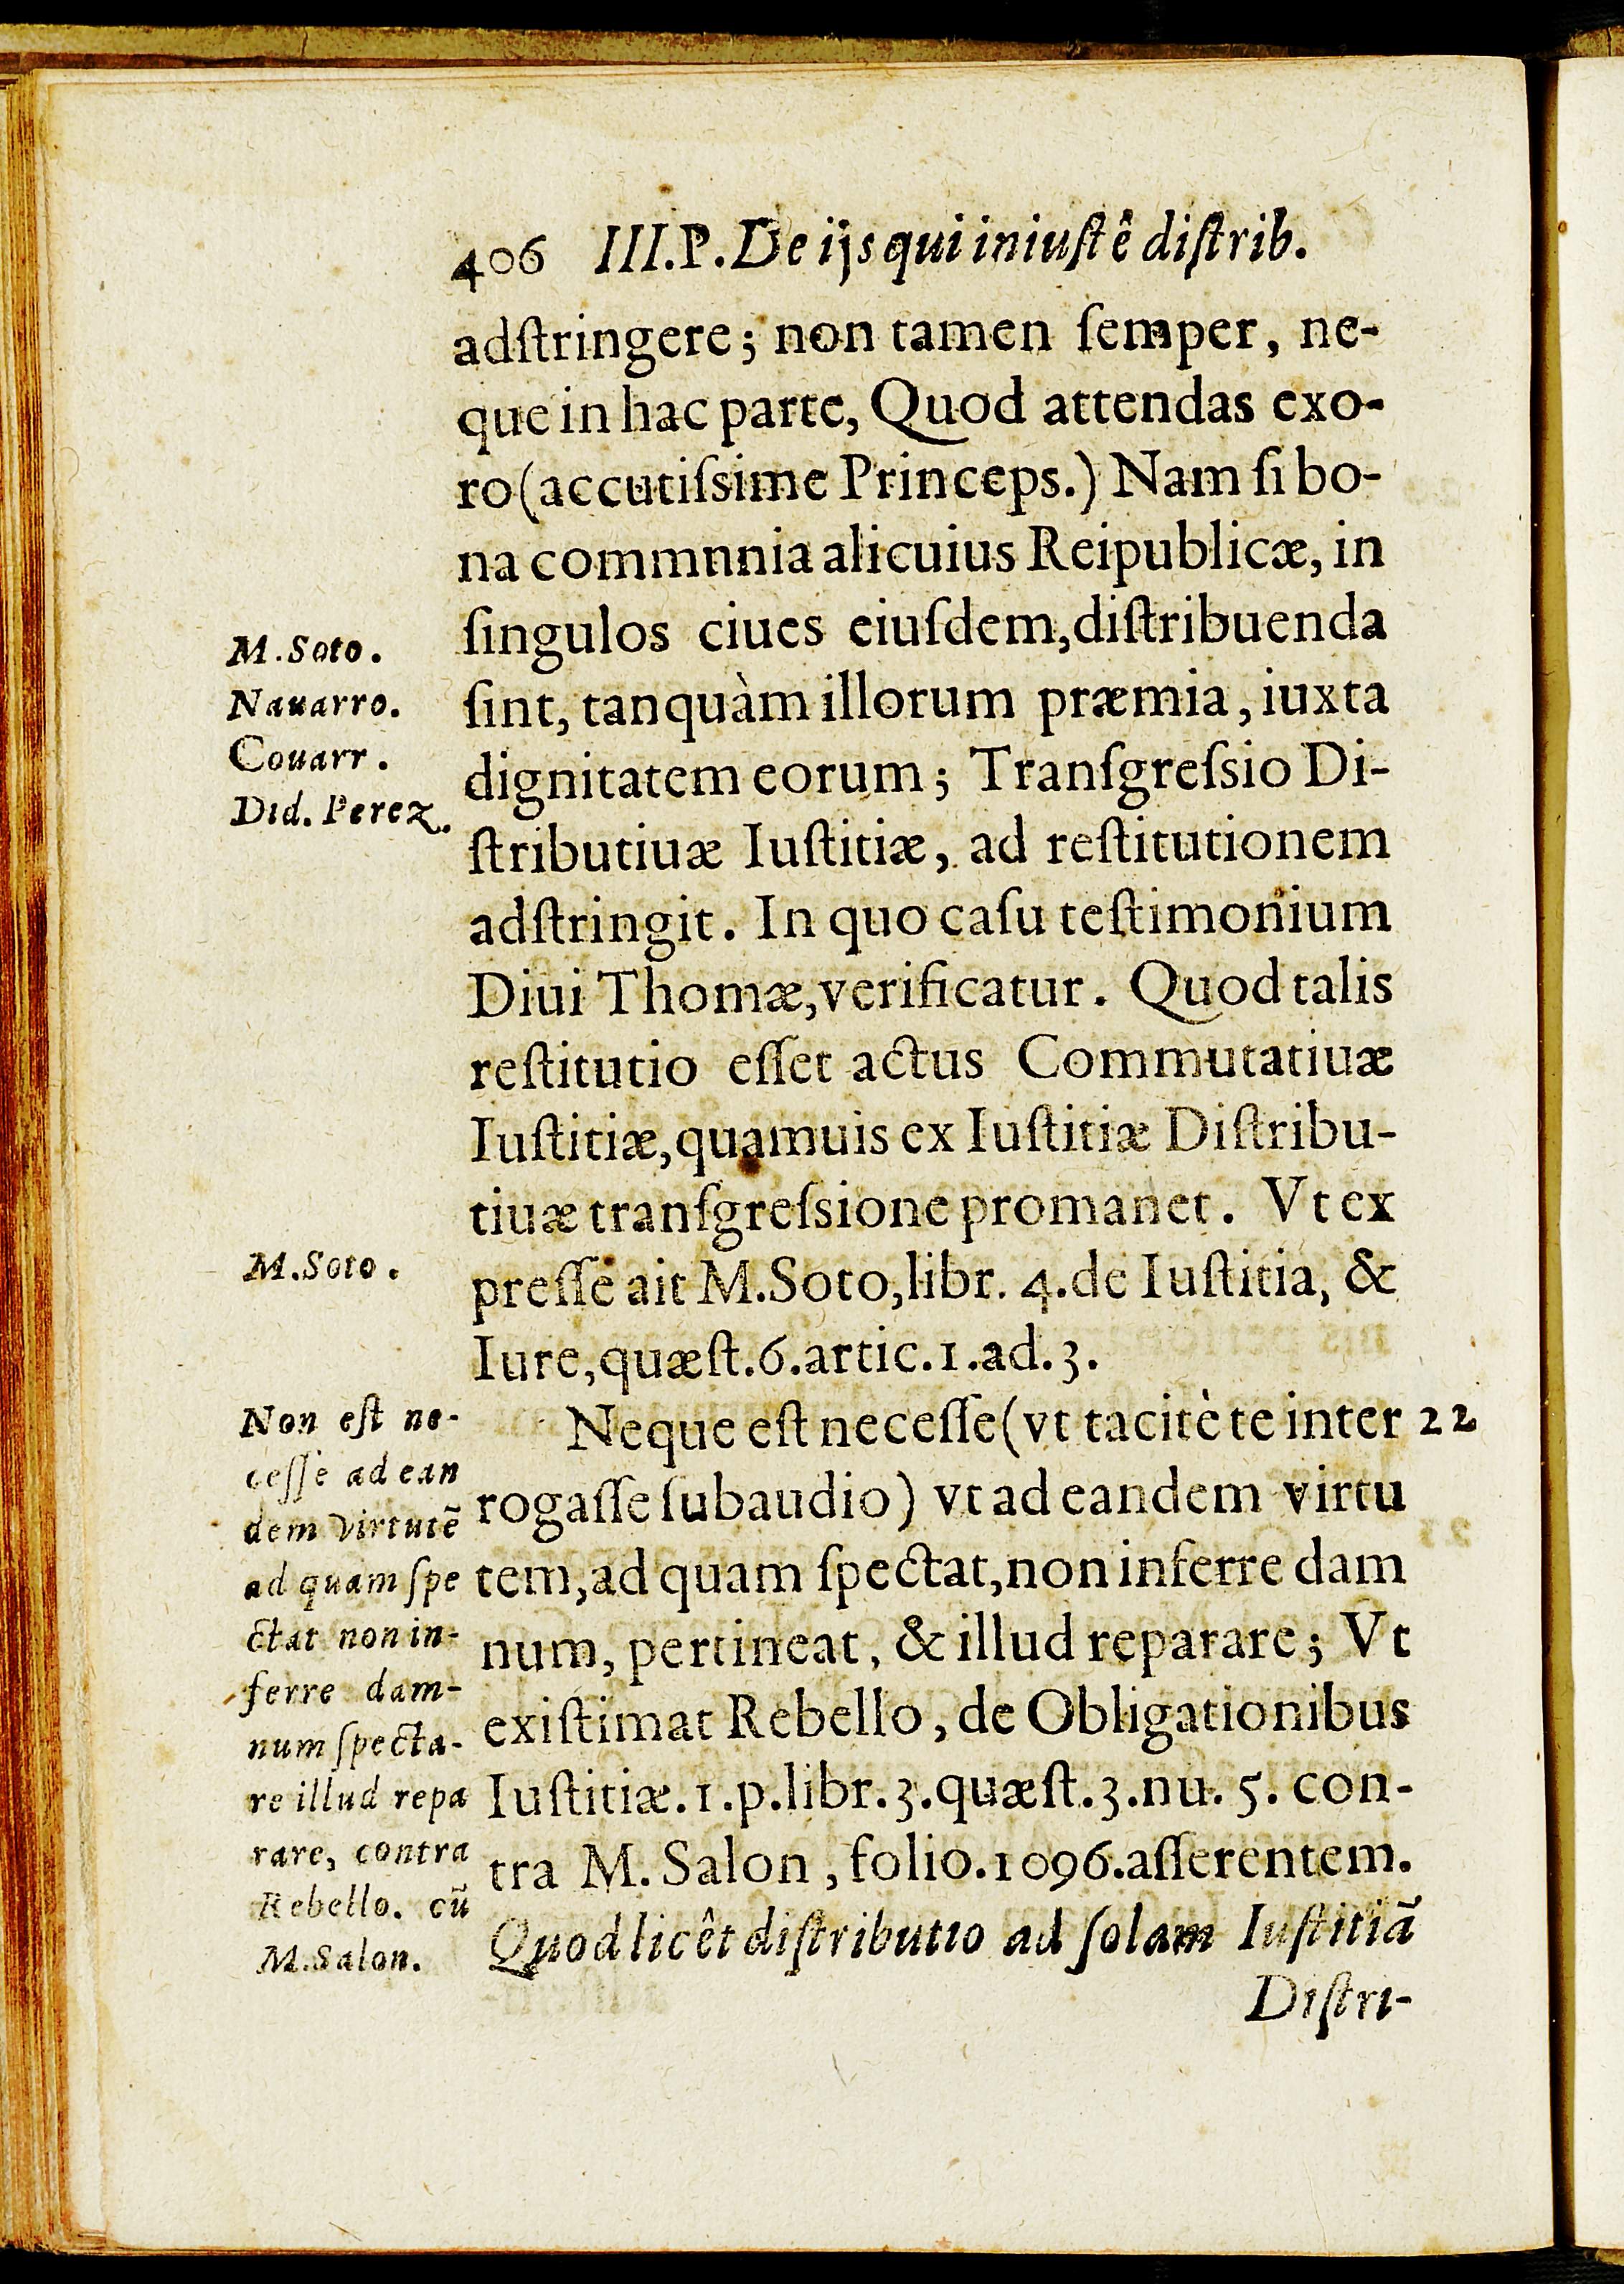 406 III.P. De ijs qui iniustê distrib.
adstringere; non tamen semper, ne-
que in hac parte, Quod attendas exo-
ro (accutissime Princeps.) Nam si bo-
na commnnia alicuius Reipublicæ, in
singulos ciues eiusdem, distribuenda
sint, tanquàm illorum præmia, iuxta
dignitatem eorum; Transgressio Di-
stributiuæ Iustitiæ, ad restitutionem
adstringit. In quo casu testimonium
Diui Thomæ, verificatur. Quod talis
restitutio esset actus Commutatiuæ
Iustitiæ, quamuis ex Iustitiæ Distribu-
tiuæ transgressione promanet. Vt ex
presse ait M. Soto, libr. 4. de Iustitia, &
Iure, quæst. 6. artic. 1. ad. 3.
Neque est necesse (vt tacitè te inter 22
rogasse subaudio) vt ad eandem virtu
tem, ad quam spectat, non inferre dam
num, pertineat, & illud reparare; Vt
existimat Rebello, de Obligationibus
Iustitiæ. 1. p. libr. 3. quæst. 3. nu. 5. con-
tra M. Salon, folio. 1096. asserentem.
Quod licêt distributio ad solam Iustitiã
Distri-
M. Soto.
Nauarro.
Couarr.
Did. Perez.
M. Soto.
Non est ne-
cessè ad ean
dem virtutẽ
ad quam spe
ctat non in-
ferre dam-
num specta-
re illud repa
rare, contra
Rebello. cũ
M. Salon.